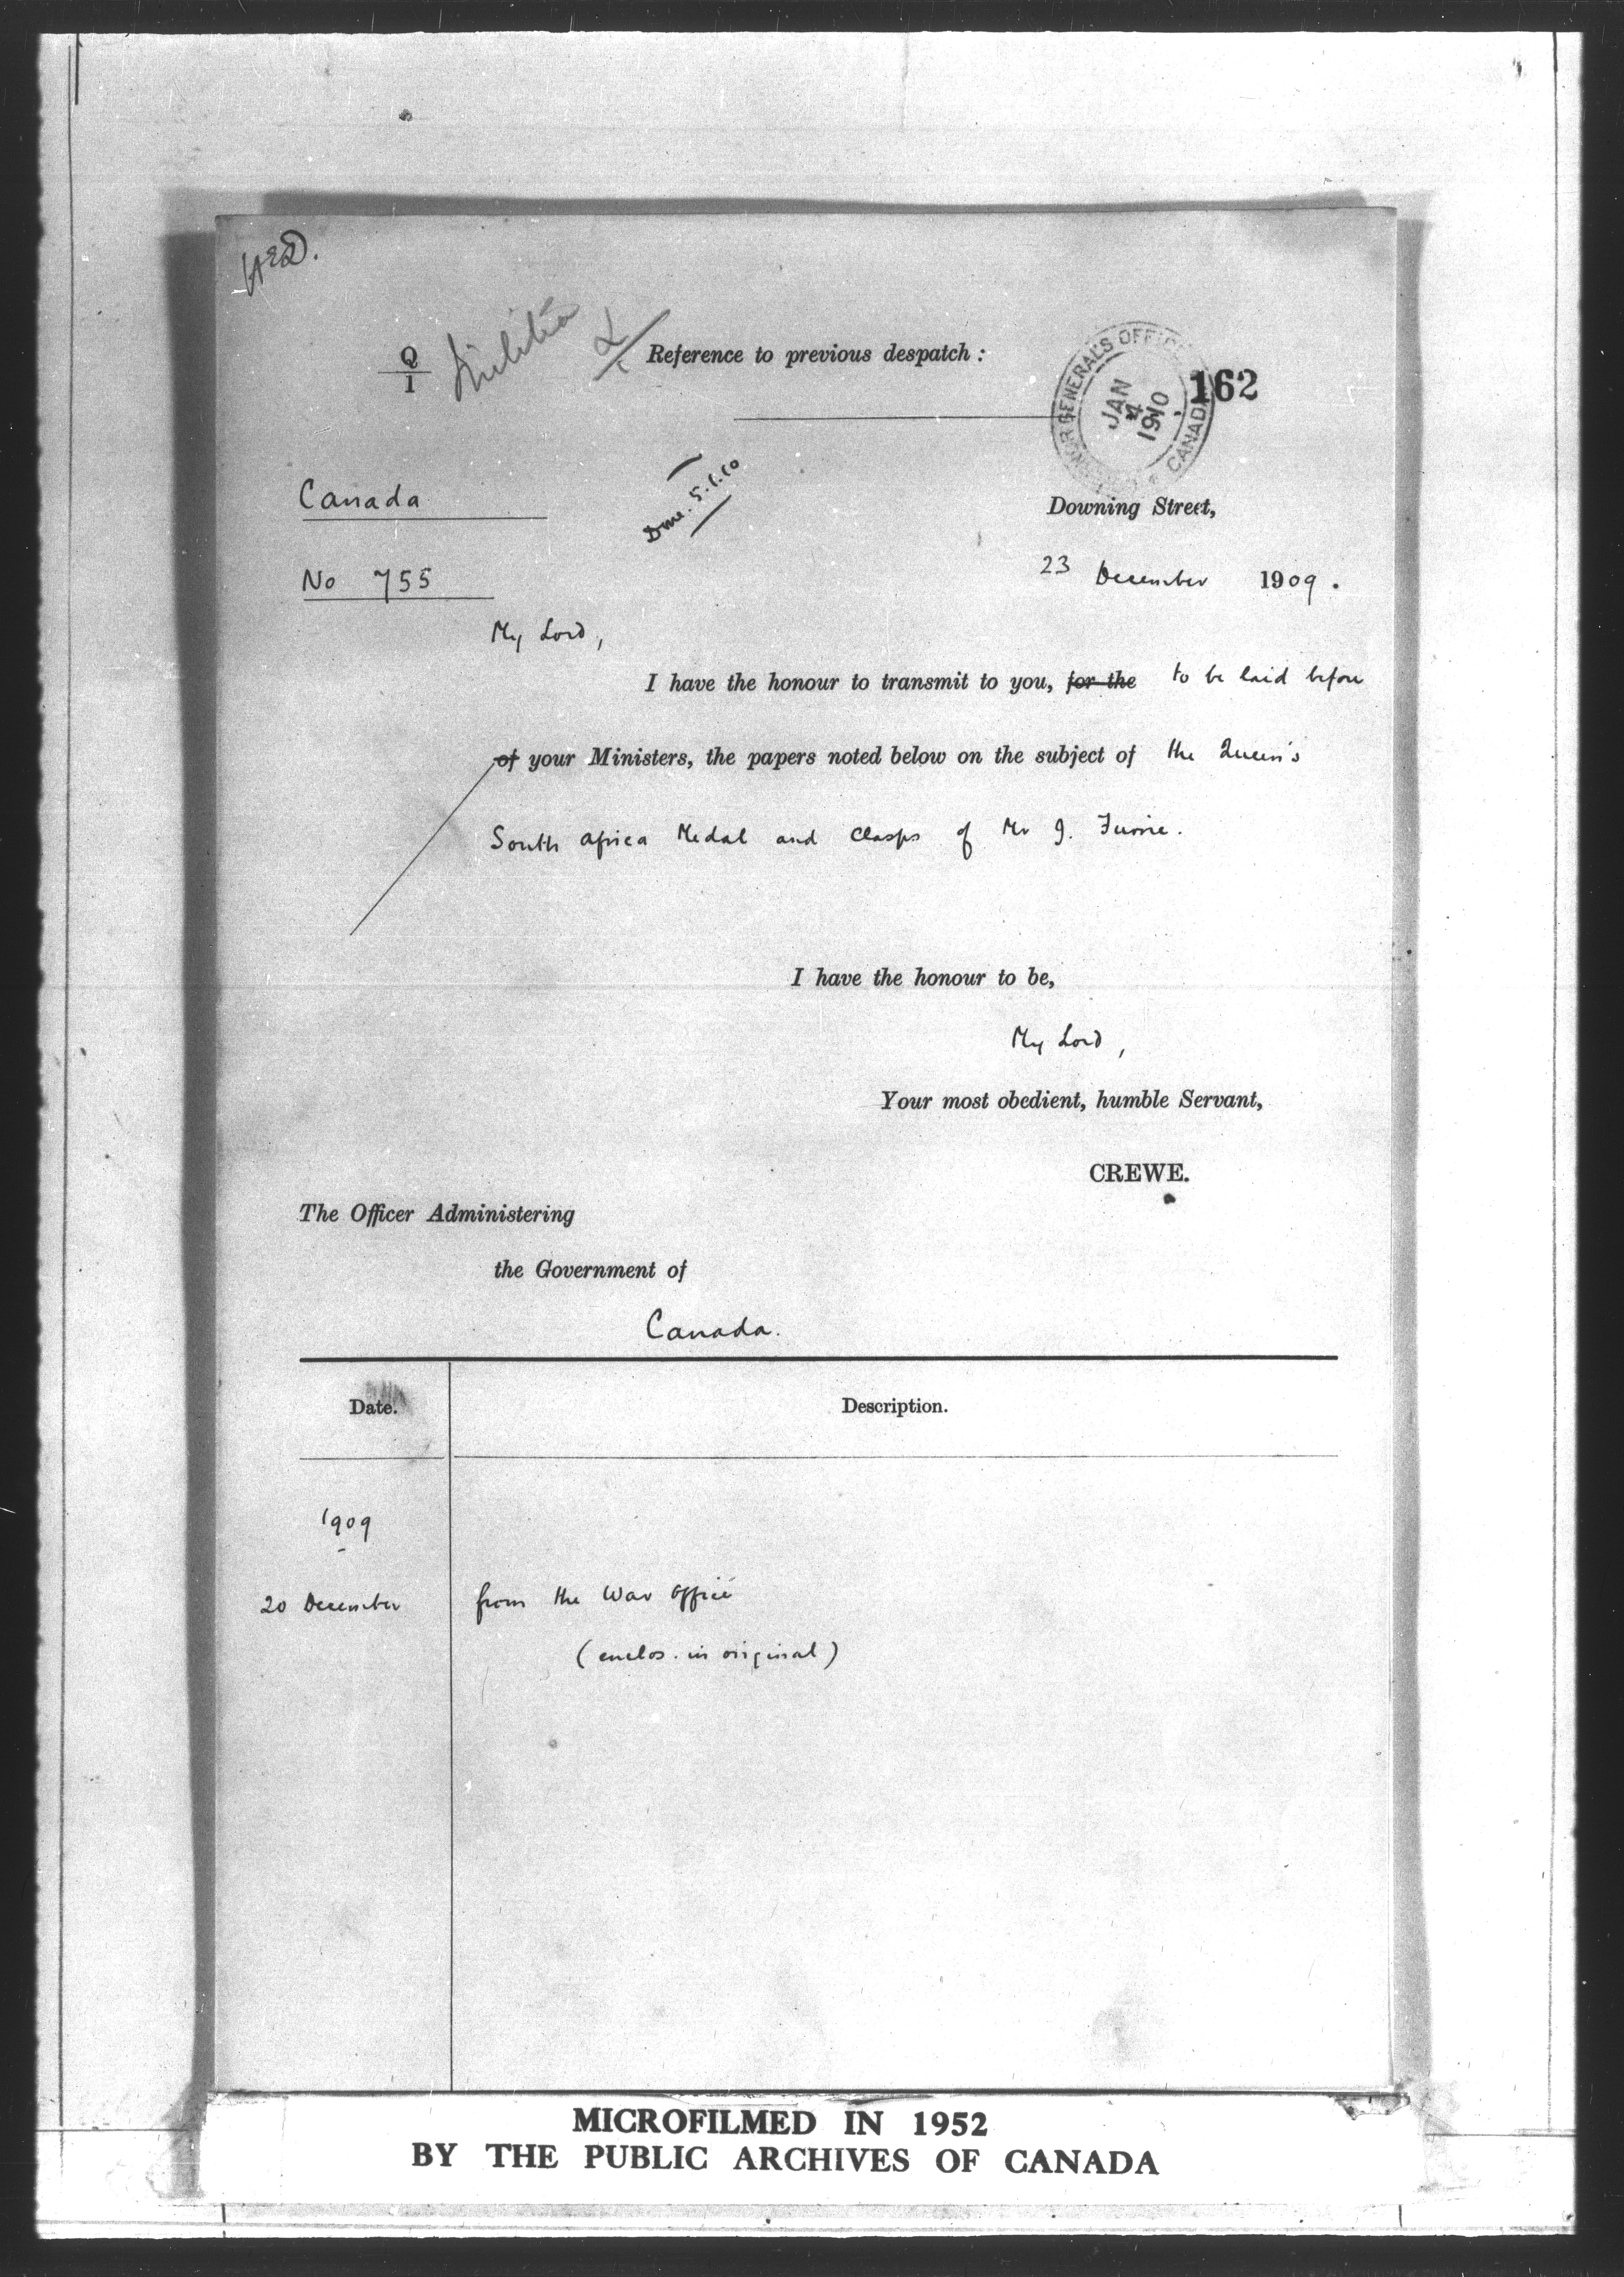 Q
1
Militia
Reference to previous despatch:
GOVERNOR GENERAL'S OFFICE
JAN
4
1910
CANADA
162
Canada
5.1.10
Downing Street,
No 755
23 December 1909.
My Lord,
I have the honour to transmit to you, for the to be laid before
of your Ministers, the papers noted below on the subject of the Queen's
South Africa Medal and Clasps of Mr J.
I have the honour to be,
My Lord,
Your most obedient, humble Servant,
CREWE.
The Officer Administering
the Government of
Canada.
Date. Description.
1909
20 December from the War Office
(enclos. in original)
MICROFILMED IN 1952
BY THE PUBLIC ARCHIVES OF CANADA